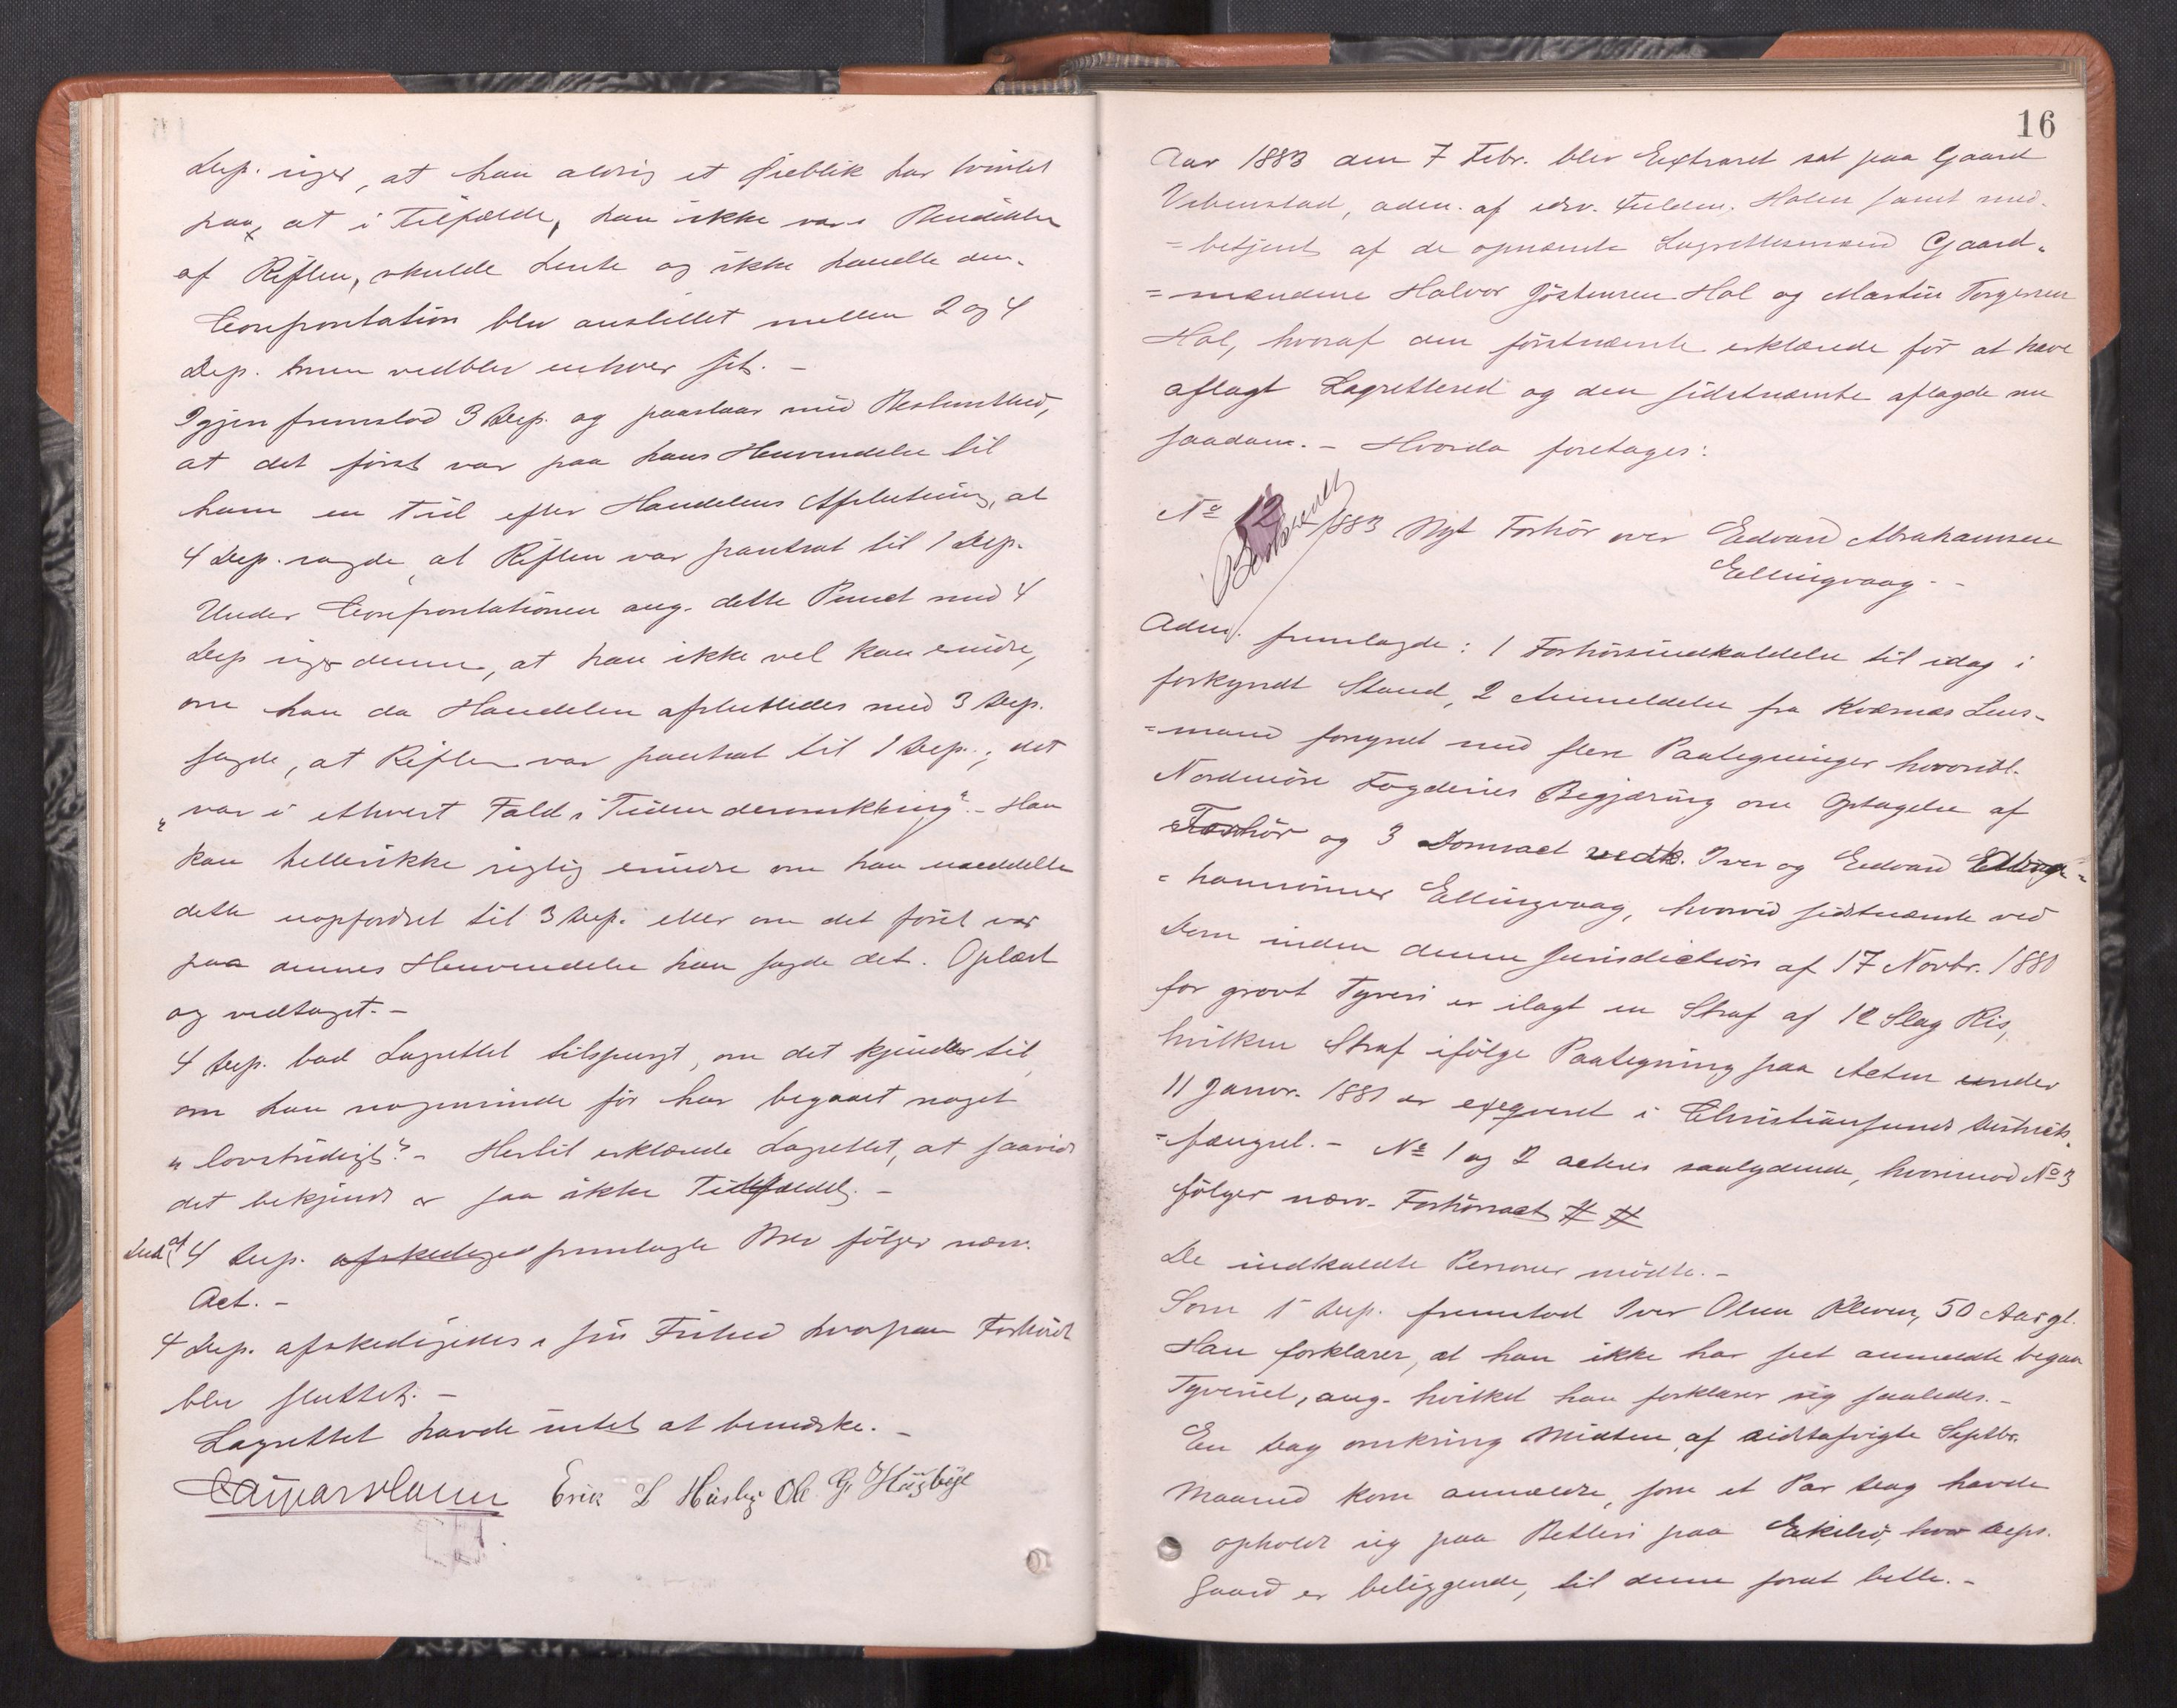 Dep. siger, at han aldrig et Øieblik har tvivlet
paa, at i Tilfælde, han ikke var i Besiddelse
af Riflen, skulde hente og ikke handle den.
Confrontation blev anstillet mellem 2 og 4
Dep. men vedblev enhver sit. –
Igjen fremstod 3 Dep. og paastaar med Bestemthed,
at det først var paa hans Henvendelse til
ham en Tid efter Handelens Afslutning, at
4 Dep. sagde, at Riflen var pantsat til 1 Dep.
Under Confrontationen ang. dette Punct med 4
Dep siger denne, at han ikke vel kan erindre,
om han da Handelen afsluttedes med 3 Dep.
sagde, at Riflen var pantsat til 1 Dep.; det
"var i ethvert Fald i Tiden deromkring". – Han
kan hellerikke rigtig erindre om han meddelte
dette uopfordret til 3 Dep. eller om det først var
paa dennes Henvendelse han sagde det. Oplæst
og vedtaget. –
4 Dep. bad Lagrettet tilspurgt, om det kjender til,
om han nogensinde før har begaaet noget
"lovstridigt". – Hertil erklærede Lagrettet, at saavidt
det bekjendt er saa ikke Tilfældet. –
Det af 4 Dep. afskediges fremlagte Brev følger nærv.
Act. –
4 Dep. afskedigedes i sin Frihed hvorpaa Forhøret
blev sluttet. –
Lagrettet havde intet at bemærke. –
Erik L Husby Ole G. Høgbøje
16
Aar 1883 den 7 Febr. blev Extraret sat paa Gaard
Vebenstad, adm. af edsv. Fuldm. Holm samt med-
=betjent af de opnævnte Lagrettesmænd Gaard-
=mændene Halvor Jøstensen Hol og Martin Torgersen
Hol, hvoraf den førstnævnte erklærede før at have
aflagt Lagretteed og den sidstnævnte aflagde nu
saadan. – Hvorda foretages:
No 12 1883 Nyt Forhør over Edvard Abrahamsen
Ellingvaag. –
Adm. fremlagde: 1 Forhørsindkaldelse til idag i
forkyndt Stand, 2 Anmeldelse fra Kværnes Lens-
=mand forsynet med flere Paategninger hvoribl.
Nordmøre Fogderies Begjæring om Optagelse af
Forhør og 3 Domsact vedk. Iver og Edvard Abra=
=hamsønner Ellingvaag, hvorved sidstnævnte ved
Dom inden denne Jurisdiction af 17 Novbr. 1880
for grovt Tyveri er ilagt en Straf af 12 Slag Ris,
hvilken Straf ifølge Paategning paa Acten under
11 Januar. 1881 er exeqveret i Christiansunds Districts-
=fængsel. – No 1 og 2 acteres saalydende, hvorimod No 3
følger nærv. Forhørsact # #
De indkaldte Personer mødte. –
Som 1ste Dep. fremstod Iver Olsen Kleven, 50 Aar gl.
Han forklarer, at han ikke har seet anmeldte begaa
Tyveriet, ang. hvilket han forklarer sig saaledes. –
En Dag omkring Midten af sidstafvigte Septbr.
Maaned kom anmeldte, som et Par Dag havde
opholdt sig paa Betleri paa Ekilsø, hvor Deps.
Gaard er beliggende, til denne forat betle. –